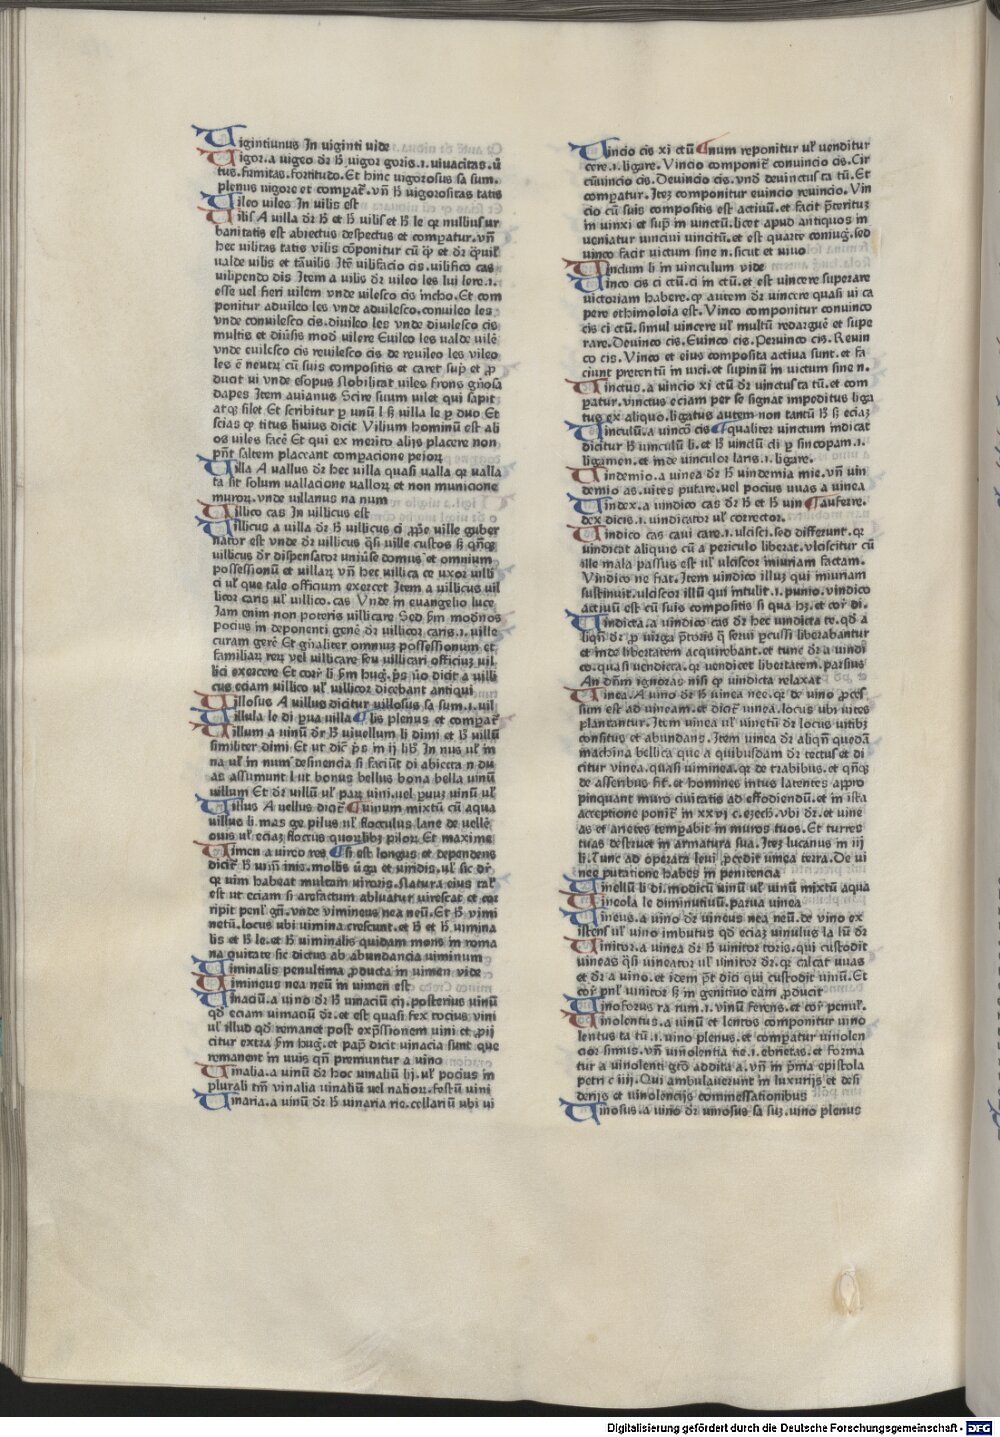 Uigintiunus In uiginti uide
Uigor. a uigeo dr̄ h̄ uigor goris .i. uiuacitas. ū
tus. firmitas. fortitudo. Et hinc uigorosus sa sum.
plenus uigore et compať. vn̄ h̄ uigorositas tatis
Uileo uiles In uilis est
Uilis A villa dr̄ h̄ et h̄ uilis et h̄ le qr nullius ur
banitatis est abiectus despectus et compatur. vn̄
hec uilitas tatis vilis cōponitur cū ꝑ et dr̄ ꝑuil̄
ualde uilis et tāuilis Itē uilifacio cis. uilifico cas
uilipendo dis Item a uilis dr̄ uileo les lui lere .i.
esse vel fieri uilem vnde vilesco cis incho. Et com
ponitur aduileo les vnde aduilesco. conuileo les
vnde conuilesco cis. diuileo les vnde diuilesco cis
multis et diūsis mod̄ vilere Euileo les ualde uilē
vnde euilesco cis reuilesco cis de reuileo les vileo
les ē neutrꝝ cū suis compositis et caret sup̄ et ꝓ
ducit ui vnde esopus Nobilitat uiles frons gn̄osa
dapes Item auianus Scire suum uilet qui sapit
atqꝫ silet Et scribitur ꝑ unū l sꝫ uilla le ꝑ duo Et
scias qꝫ titus liuius dicit Vilium hominū est ali
os uiles facē Et qui ex merito alijs placere non
pn̄t saltem placeant compacione peioꝝ
Uilla A uallus dr̄ hec uilla quasi ualla qr ualla
ta sit solum uallacione valloꝝ et non municione
muroꝝ. vnde uillanus na num
Uillico cas In villicus est
Uillicus a uilla dr̄ h̄ uillicus ci ꝓpe uille guber
nator est vnde dr̄ uillicus q̄si uille custos sꝫ qn̄qꝫ
uillicus dr̄ dispensator uniūse domus et omnium
possessionū et uillaꝝ vn̄ hec uillica ce uxor uilli
ci ul̄ que tale officium exercet Item a uillicus uil
licor caris ul̄ uillico. cas Vnde in euangelio luce
Iam enim non poteris uillicare Sed ẜm modn̄os
pocius in deponenti genē dr̄ uillicor caris .i. uille
curam gerē Et gn̄aliter omniuꝫ possessionum et
familiaꝝ reꝝ vel uillicare seu uillicari officiuꝫ uil
lici exercere Et corꝵ li ẜm hug. p̄s ūo dicit a uilli
cus eciam uillico ul̄ uillicor dicebant antiqui
Uillosus A uillus dicitur uillosus sa sum .i. uil
Uillula le di ꝑua uilla ¶lis plenus et compať
Uillum a uinū dr̄ h̄ uiuellum li dimi et h̄ uillū
similiter dimi Et ut dic̄ p̄s in ij lib̄ In nus ul̄ in
na ul̄ in num desinencia si faciūt di abiecta n du
as assumunt l ut bonus bellus bona bella uinū
uillum Et dr̄ uillū ul̄ paꝝ uini. vel ꝑuuꝫ uinū ul̄
Uillus A uellus dicit̄ ¶uinum mixtū cū aqua
uillus li mas ge pilus ul̄ flocculus lane de uellē
ouis ul̄ eciaꝫ floccus quoꝝlibꝫ piloꝝ Et maxime
Uimen a uireo res ¶si est longus et dependens
dicit̄ h̄ uim̄ inis. mollis ūga et uiridis. ul̄ sic dr̄
qr uim habeat multam uiroris. Natura eius tal̄
est ut eciam si arefactum abluatur uirescat et cor
ripit penl̄ gn̄. vnde vimineus nea neū. Et h̄ vimi
netū. locus ubi uimina crescunt. et h̄ et h̄ uimina
lis et h̄ le. et h̄ uiminalis quidam mons in roma
na ciuitate sic dictus ab abundancia uiminum
Uiminalis penultima ꝓducta in uimen vide
Uimineus nea neū in uimen est
Uinaciū. a uino dr̄ h̄ uinaciū cij. posterius uinū
qd̄ eciam uimaciū dr̄. et est quasi fex tocius vini
ul̄ illud qd̄ remanet post exp̄ssionem uini et ꝓij
citur extra ẜm huḡ. et pap̄ dicit uinacia sunt que
remanent in uuis qn̄ premuntur a uino
Uinalia. a uinū dr̄ hoc uinaliū lij. ul̄ pocius in
plurali tm̄ vinalia uinaliū uel nalioꝝ. festū uini
Uinaria. a uinū dr̄ h̄ uinaria rie. cellariū ubi ui
Uincio cis xi ctū ¶num reponitur ul̄ venditur
cere .i. ligare. Vincio componit̄ conuincio cis. Cir
cūuincio cis. Deuincio cis. vnd̄ deuinctus ta tū. Et
compatur. Iteꝫ componitur euincio reuincio. Vin
cio cū suis compositis est actiuū. et facit p̄terituꝫ
in uinxi et sup̄ in uinctū. licet apud antiquos in
ueniatur uinciui uincitū. et est quarte coniuḡ. sed
uinco facit uictum sine n. sicut et uiuo
Uinclum li in uinculum vide
Uinco cis ci ctū. ci in ctū. et est vincere superare
uictoriam habere. qꝫ autem dr̄ uincere quasi ui ca
pere ethimoloia est. Vinco componitur conuinco
cis ci ctū. simul uincere ul̄ multū redarguē et supe
rare. Deuinco cis. Euinco cis. Peruinco cis. Reuin
co cis. Vinco et eius composita actiua sunt. et fa
ciunt preteritū in uici. et supinū in uictum sine n.
Uinctus. a uincio xi ctū dr̄ uinctus ta tū. et com
patur. vinctus eciam per se signat impeditus liga
tus ex aliquo. ligatus autem non tantū h̄ sꝫ eciaꝫ
Uinculū. a uincō cis ¶qualiter uinctum indicat
dicitur h̄ uinculū li. et h̄ vinclū cli ꝑ sincopam .i.
ligamen. et inde uinculor laris .i. ligare.
Uindemio. a uinea dr̄ h̄ uindemia mie. vn̄ uin
demio as. uites putare. vel pocius uuas a uinea
Uindex. a uindico cas dr̄ h̄ et h̄ uin ¶auferre.
dex dicis .i. uindicator ul̄ corrector.
Uindico cas caui care .i. ulcisci. sed differunt. qr
uindicat aliquis cū a periculo liberat. vlciscitur cū
ille mala passus est ul̄ ulciscor iniuriam factam.
Vindico ne fiat. Item uindico illuꝫ qui iniuriam
sustinuit. ulciscor illū qui intulit .i. punio. vindico
actiuū est cū suis compositis si qua hꝫ. et corꝵ di.
Uindicta. a uindico cas dr̄ hec uindicta te. qd̄ a
liqn̄ dr̄ ꝓ uirga p̄toris q̄ serui ꝑcussi liberabantur
et inde libertatem acquirebant. et tunc dr̄ a uindi
co. quasi uendicta. qr uendicet libertatem. Parsius
An dn̄m ignoras nisi qꝫ uindicta relaxat
Uinea. A uino dr̄ h̄ uinea nee. qr de vino ꝓces
sum est ad uineam. et dicit̄ vinea. locus ubi uites
plantantur. Item uinea ul̄ uinetū dr̄ locus uitibꝫ
consitus et abundans. Item uinea dr̄ aliqn̄ quedā
machina bellica que a quibusdam dr̄ tectus et di
citur vinea. quasi uiminea. qr de trabibus. et qn̄qꝫ
de asseribus fit. et homines intus latentes appro
pinquant muro ciuitatis ad effodiendū. et in ista
acceptione ponit̄ in xxvi c. ezech. vbi dr̄. et uine
as et arietes temꝑabit in muros tuos. Et turres
tuas destruet in armatura sua. Iteꝫ lucanus in iij
li. Tunc ad operata leui ꝓcedit vinea terra. De ui
nee putatione habes in penitencia
Uinellū li di. modicū uinū ul̄ uinū mixtū aqua
Uineola le diminutiuū. parua uinea
Uineus. a uino dr̄ uineus nea neū. de vino ex
istens ul̄ vino imbutus qd̄ eciaꝫ uinulus la lū dr̄
Uinitor. a uinea dr̄ h̄ uinitor toris. qui custodit
uineas q̄si uineator ul̄ uinitor dr̄. qr calcat uuas
et dr̄ a vino. et idem pt̄ dici qui custodit uinū. Et
corꝵ pnl̄ uinitor sꝫ in genitiuo eam ꝓducit
Uinoforus ra rum .i. vinū ferens. et corꝵ penul̄.
Uinolentus. a uinū et lentos componitur uino
lentus ta tū .i. uino plenus. et compatur uinolen
cior simus. vn̄ uinolentia tie .i. ebrietas. et forma
tur a uinolenti gtō addita a. vn̄ in pͥma epistola
petri c iiij. Qui ambulauerunt in luxurijs et desi
derijs et uinolencijs commessationibus
Uinosus. a uino dr̄ uinosus sa suꝫ. uino plenus
Digitalisierung gefördert durch die Deutsche Forschungsgemeinschaft - DFG